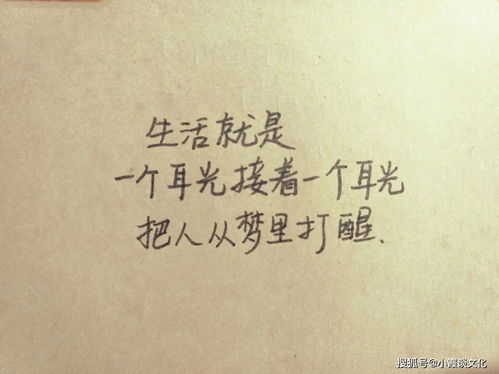 生活就是
一个耳光接着一个耳光
把人从梦里打醒、
搜狐号@小霞谈文化